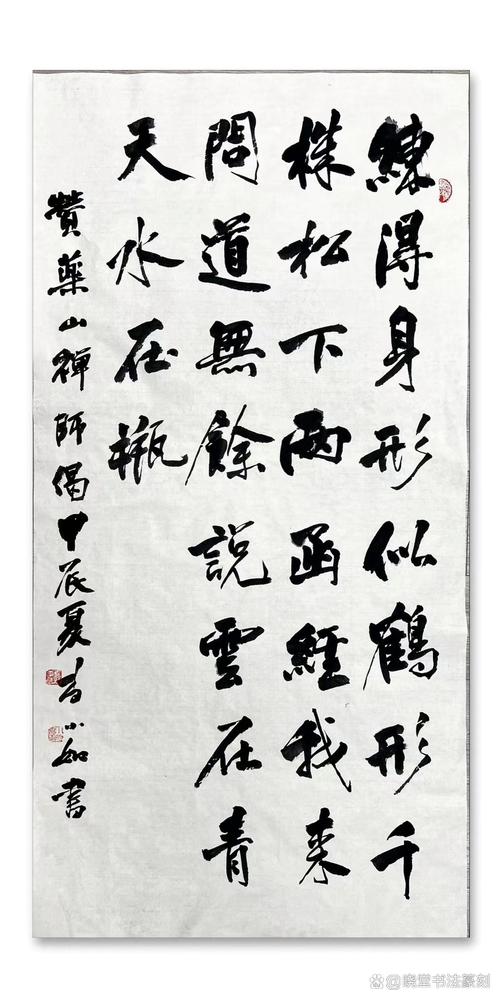 練得身形似鶴形千
株松下兩函經我来
問道無餘說雲在青
天水在瓶
贊藥山禪師偈甲辰夏小如書
@晓堂书法篆刻